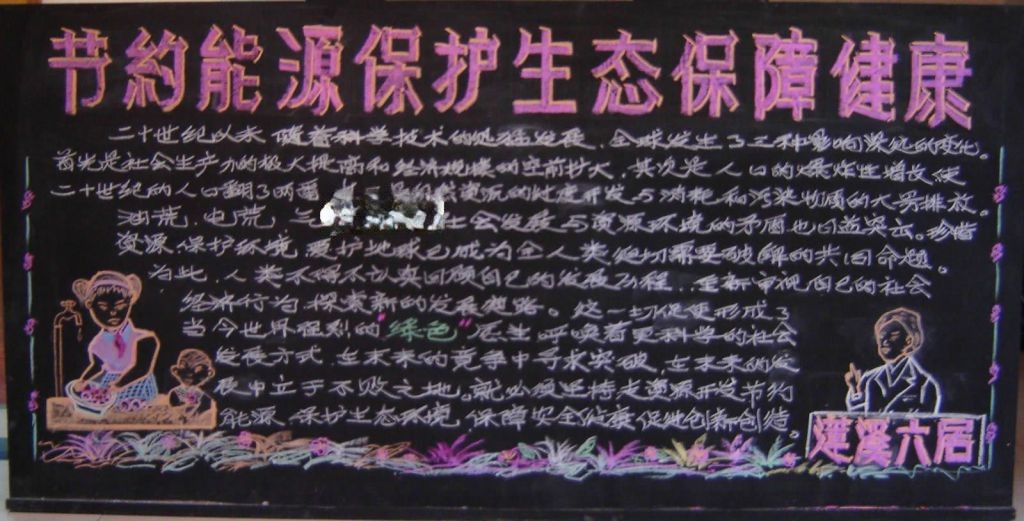 节約能源保护生态保障健康
二十世纪以来 随着科学技术的迅猛发展，全球发生了三种影响深远的变化。
首先是社会生产力的极大提高和经济规模的空前扩大，其次是 人口的爆炸性增长使
二十世纪的人口翻了两番 资源的过度开发与消耗和污染物质的大量排放。
油荒，电荒 气 社会发展与资源环境的矛盾也日益突出。珍惜
资源，保护环境，爱护地球已成为全人类迫切需要破解的共同命题。
为此，人类不得不认真回顾自己的发展历程，重新审视自己的社会
经济行为 探索新的发展思路。这一切促使形成了
当今世界强烈的"绿色" 态生 呼唤着更科学的社会
发展方式 在未来的竞争中寻求突破，在未来的发
展中立于不败之地。就必须坚持走资源开发节约
能源，保护生态环境，保障安全健康 促进创新创造。
建溪六居